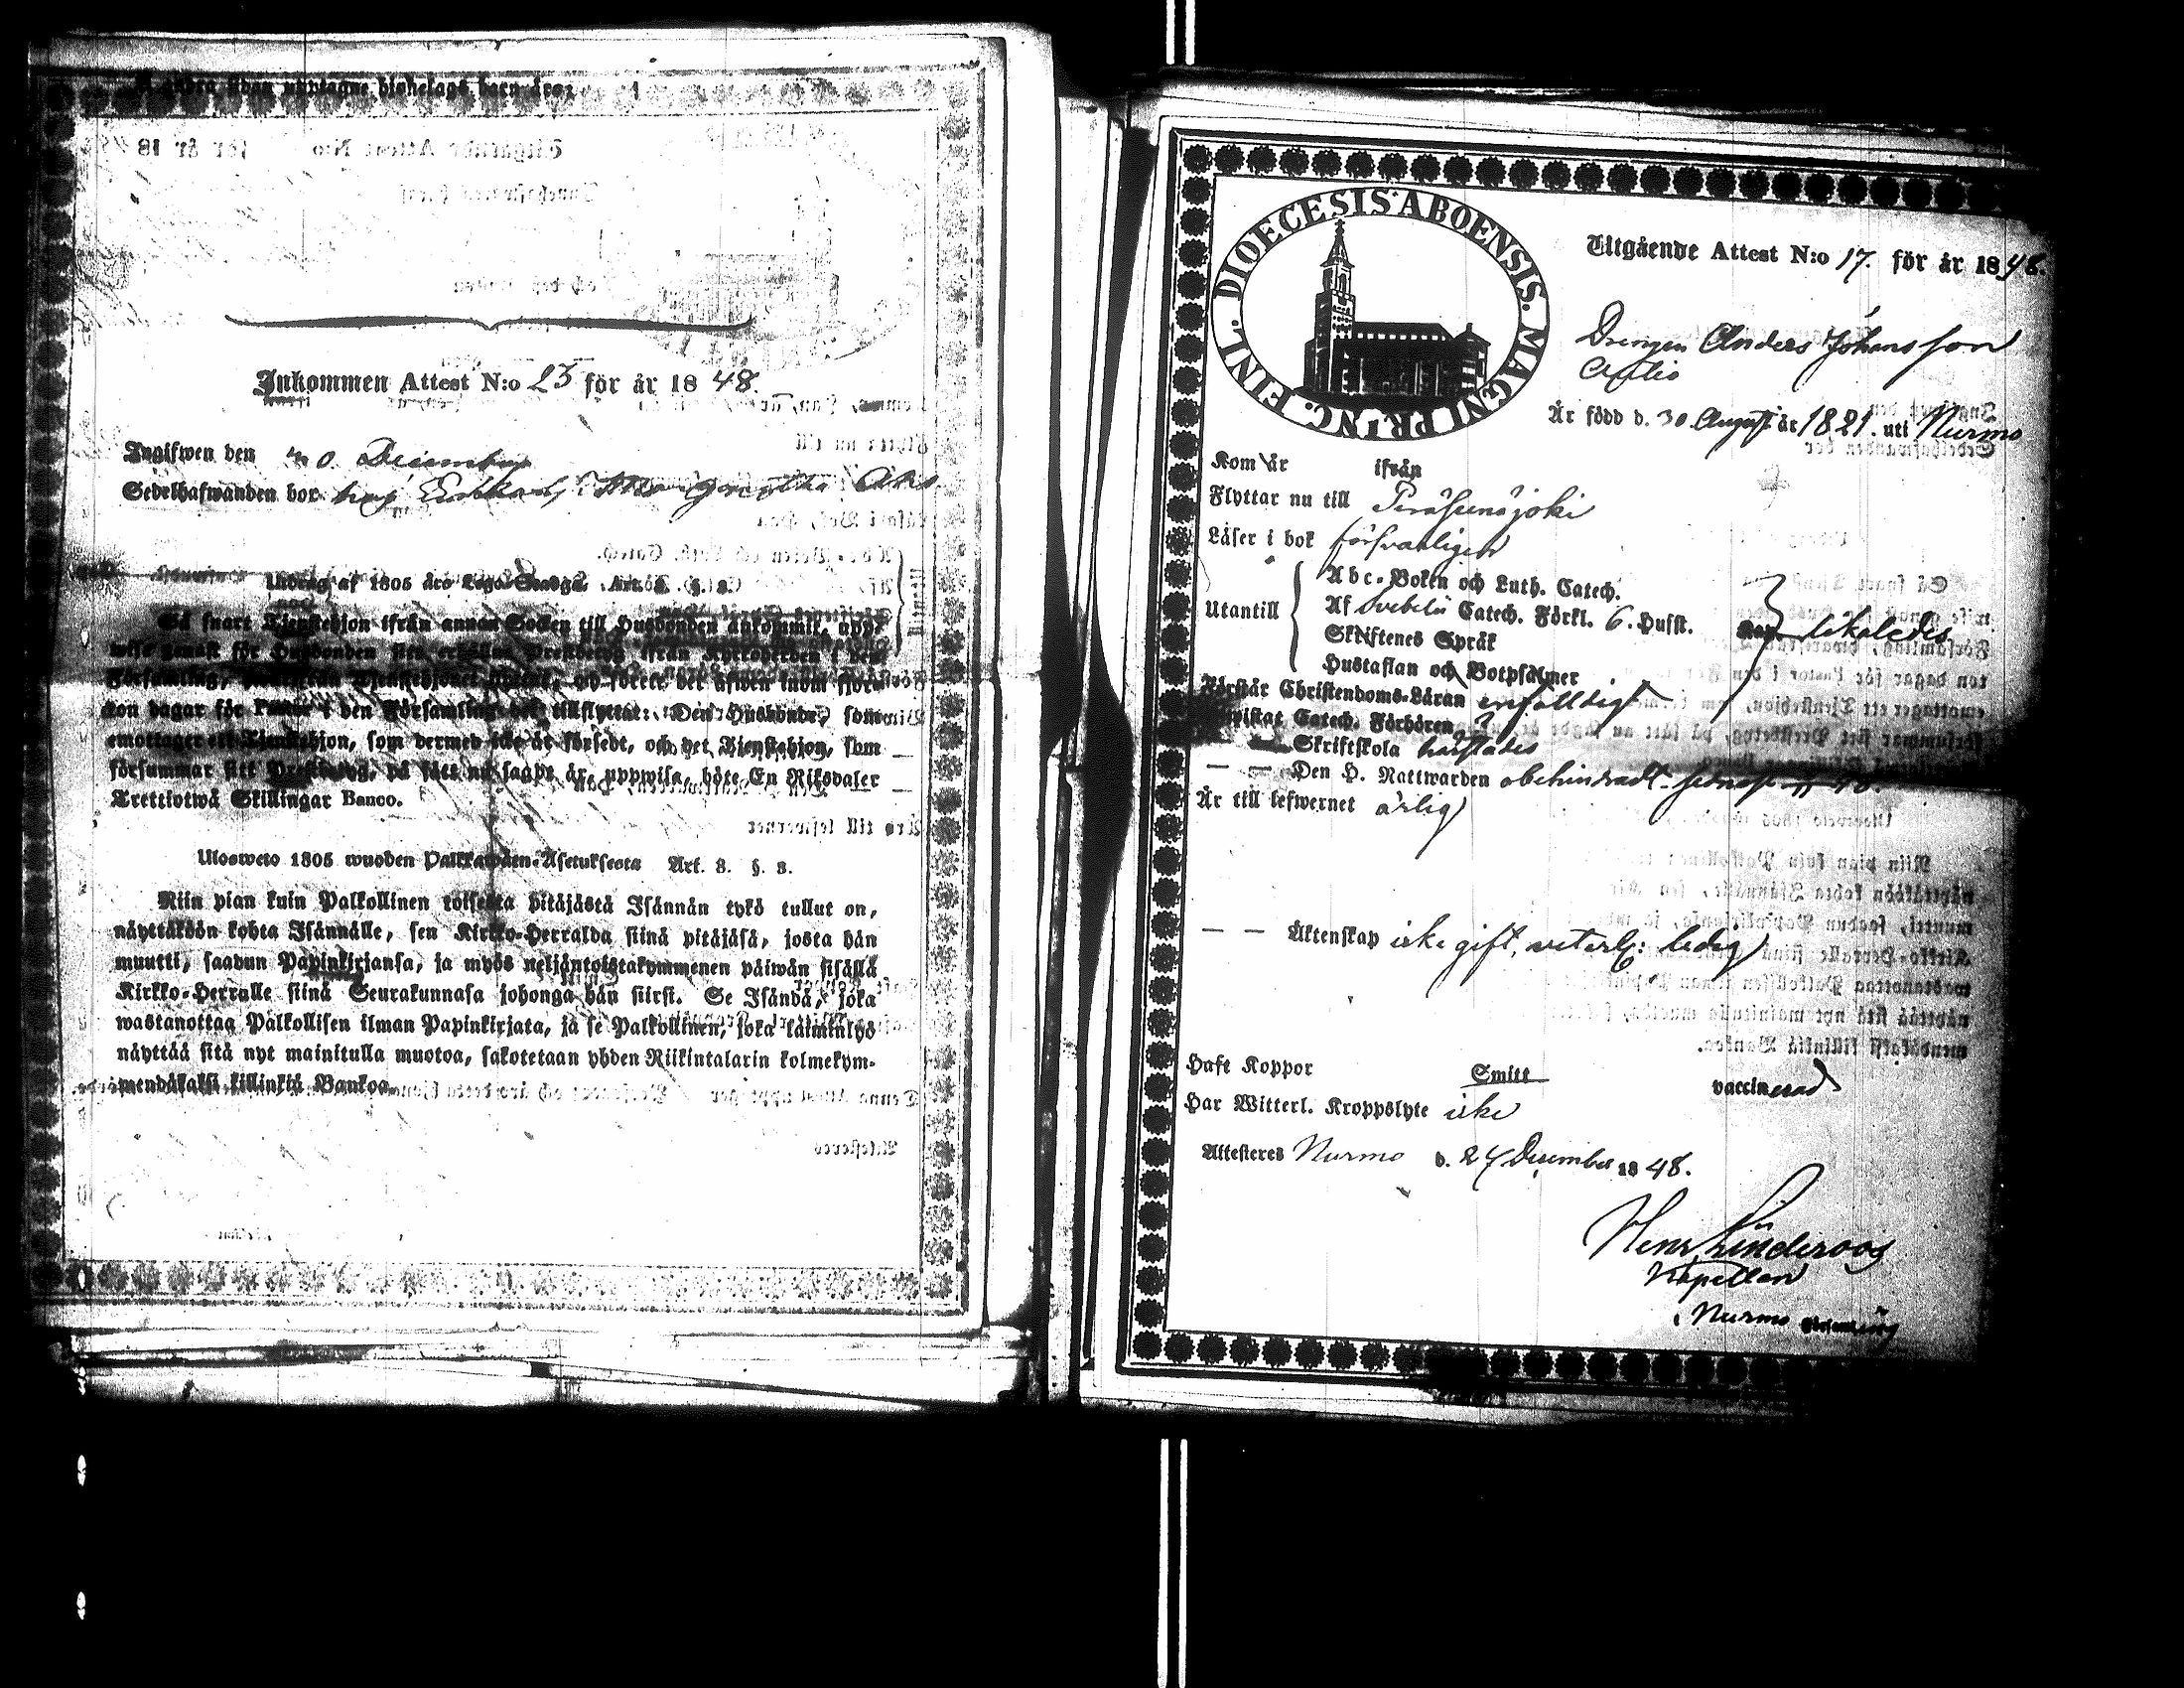 Inkommen Attest N:o 23 för år 1848.
Ingifwen den 30 December
Sedelhafwanden bor hos
Utdrag af 1805 års Lego-Stadga. Art. 3. §. 3.
Så snart Tjenstehjon ifrån annan Socken till Husbonden ankommit, upp-
wise genast för Husbonden sitt erhållna Prestbetyg ifrån Kyrkoherden i den
Församling, och förete det äfwen inom fjor-
ton dagar för Pastor i den Församling det tillflyttat: Den Husbonde, som
emottager ett Tjenstehjon, som dermed icke är försedt, och det Tjenstehjon, som
försummar sitt Prestbetyg, på sätt nu sagdt är, uppwisa, böte En Riksdaler
Trettiotwå Skillingar Banco.
Ulosweto 1805 wuoden Palkkawäen-Asetuksesta Art. 3. §. 3.
Niin pian kuin Palkollinen toisesta pitäjästä Isännän tykö tullut on,
näyttäköön kohta Isännälle, sen Kirkko-Herralda siinä pitäjäsä, josta hän
muutti, saadun Papinkirjansa, ja myös neljäntoistakymmenen päiwän sisällä
Kirkko-Herralle siinä Seurakunnasa johonga hän siirsi. Se Isändä, joka
wastanottaa Palkollisen ilman Papinkirjata, ja se Palkollinen, joka laiminlyö
näyttää sitä nyt mainitulla muotoa, sakotetaan yhden Riikintalarin kolmekym-
mendäkaksi killinkiä Bankoa.
DIOECESIS ABOENSIS. MAGNI PRINC. FINL.
Utgående Attest N:o 17. för år 1848.
Drengen Anders Johansson
Antio
Är född d. 30 August år 1821. uti Nurmo
Kom år ifrån
Flyttar nu till Peräseinäjoki
Läser i bok försvarligen
Utantill
Abc-Boken och Luth. Catech.
Af Svebelii Catech. Förkl. 6. Hufst.
Skriftenes Språk
Hustaflan och Botpsalmer
likaledes
Förstår Christendoms-Läran enfalldigt
Bewistat Catech. Förhören
— — Skriftskola härstädes
— — Den H. Nattwarden obehindradt senast
Är till lefwernet ärlig
— — Äktenskap icke gift, veterl: ledig
Haft Koppor Smitt vaccinerad
Har Witterl. Kroppslyte icke
Attesteres Nurmo d. 27 December 1848.
Henr. Linderoos
Kapellan
i Nurmo